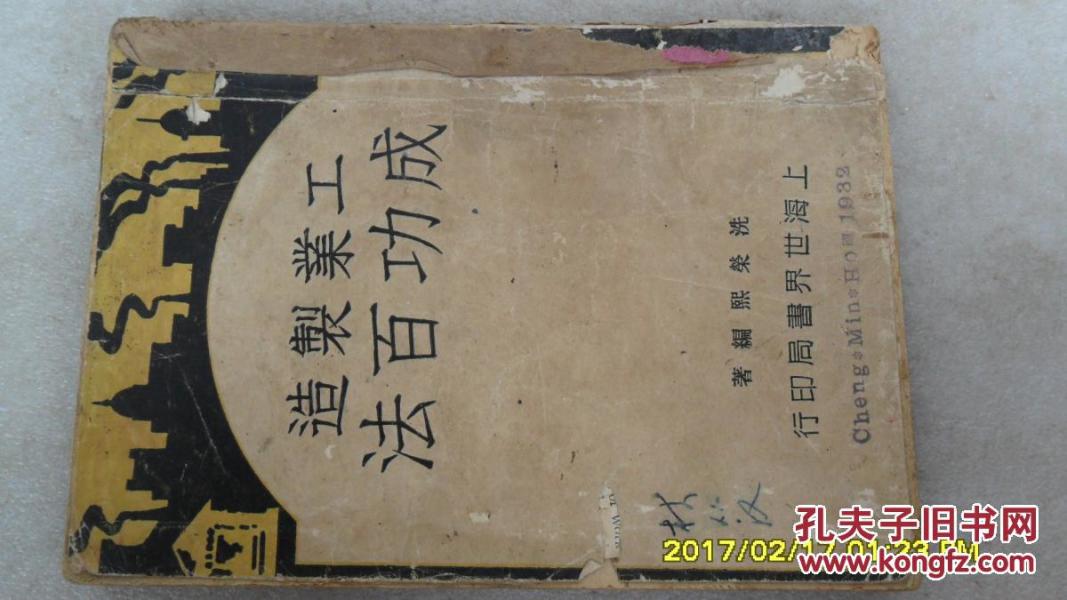 工業製造
成功百法
洗榮熙編著
上海世界書局印行
Cheng*Min*Ho 1932
2017/02/17 01:23 PM
孔夫子旧书网
www.kongfz.com